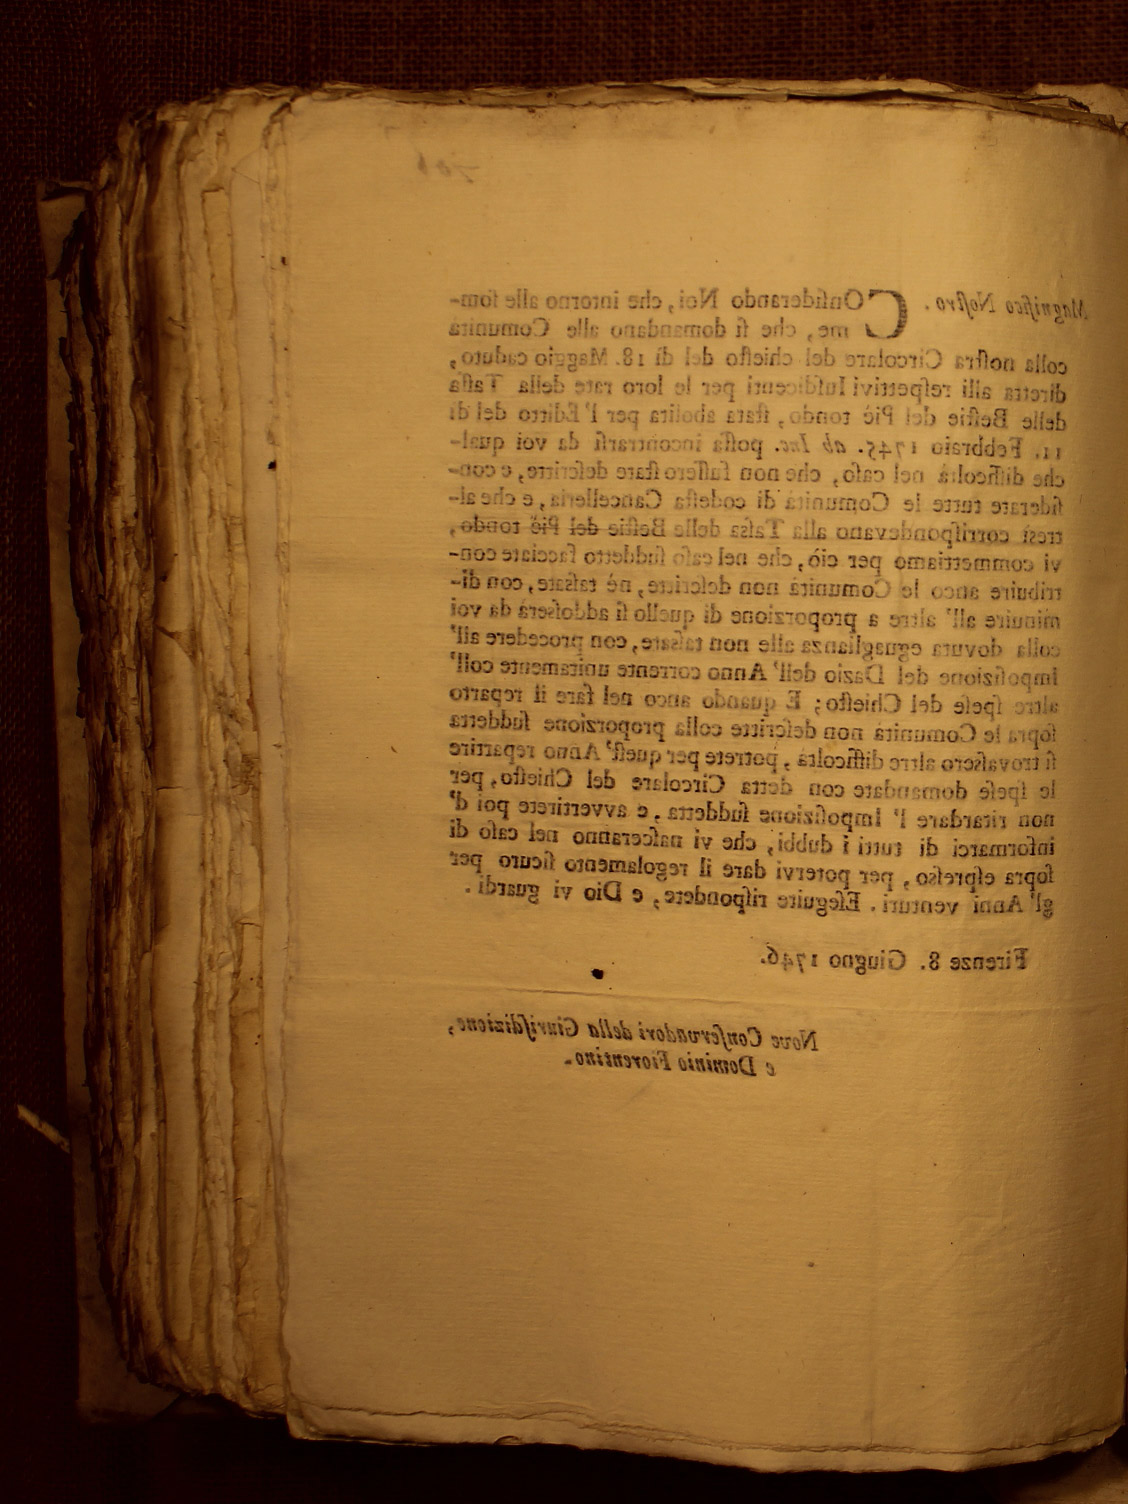 706
Magnifico Noſtro.
COnſiderando Noi, che intorno alle ſom-
me, che ſi domandano alle Comunità
colla noſtra Circolare del chieſto del dì 18. Maggio caduto,
diretta alli reſpettivi Iuſdicenti per le loro rate della Taſſa
delle Beſtie del Piè tondo, ſtata abolita per l'Editto del dì
11. Febbraio 1745. ab Inc. poſſa incontrarſi da voi qual-
che difficoltà nel caſo, che non fuſſero ſtate deſcritte, e con-
ſiderate tutte le Comunità di codeſta Cancelleria, e che al-
tresì corriſpondevano alla Taſsa delle Beſtie del Piè tondo,
vi commettiamo per ciò, che nel caſo ſuddetto facciate con-
tribuire anco le Comunità non deſcritte, nè taſsate, con di-
minuire all' altre a proporzione di quello ſi addoſserà da voi
colla dovuta eguaglianza alle non taſsate, con procedere all'
Impoſizione del Dazio dell' Anno corrente unitamente coll'
altre ſpeſe del Chieſto; E quando anco nel fare il reparto
ſopra le Comunità non deſcritte colla proporzione ſuddetta
ſi trovaſsero altre difficoltà, potrete per queſt' Anno repartire
le ſpeſe domandate con detta Circolare del Chieſto, per
non ritardare l' Impoſizione ſuddetta, e avvertirete poi d'
informarci di tutti i dubbi, che vi naſceranno nel caſo di
ſopra eſpreſso, per potervi dare il regolamento ſicuro per
gl' Anni venturi. Eſeguite riſpondete, e Dio vi guardi.
Firenze 8. Giugno 1746.
Nove Conſervadori della Giuriſdizione,
e Dominio Fiorentino.